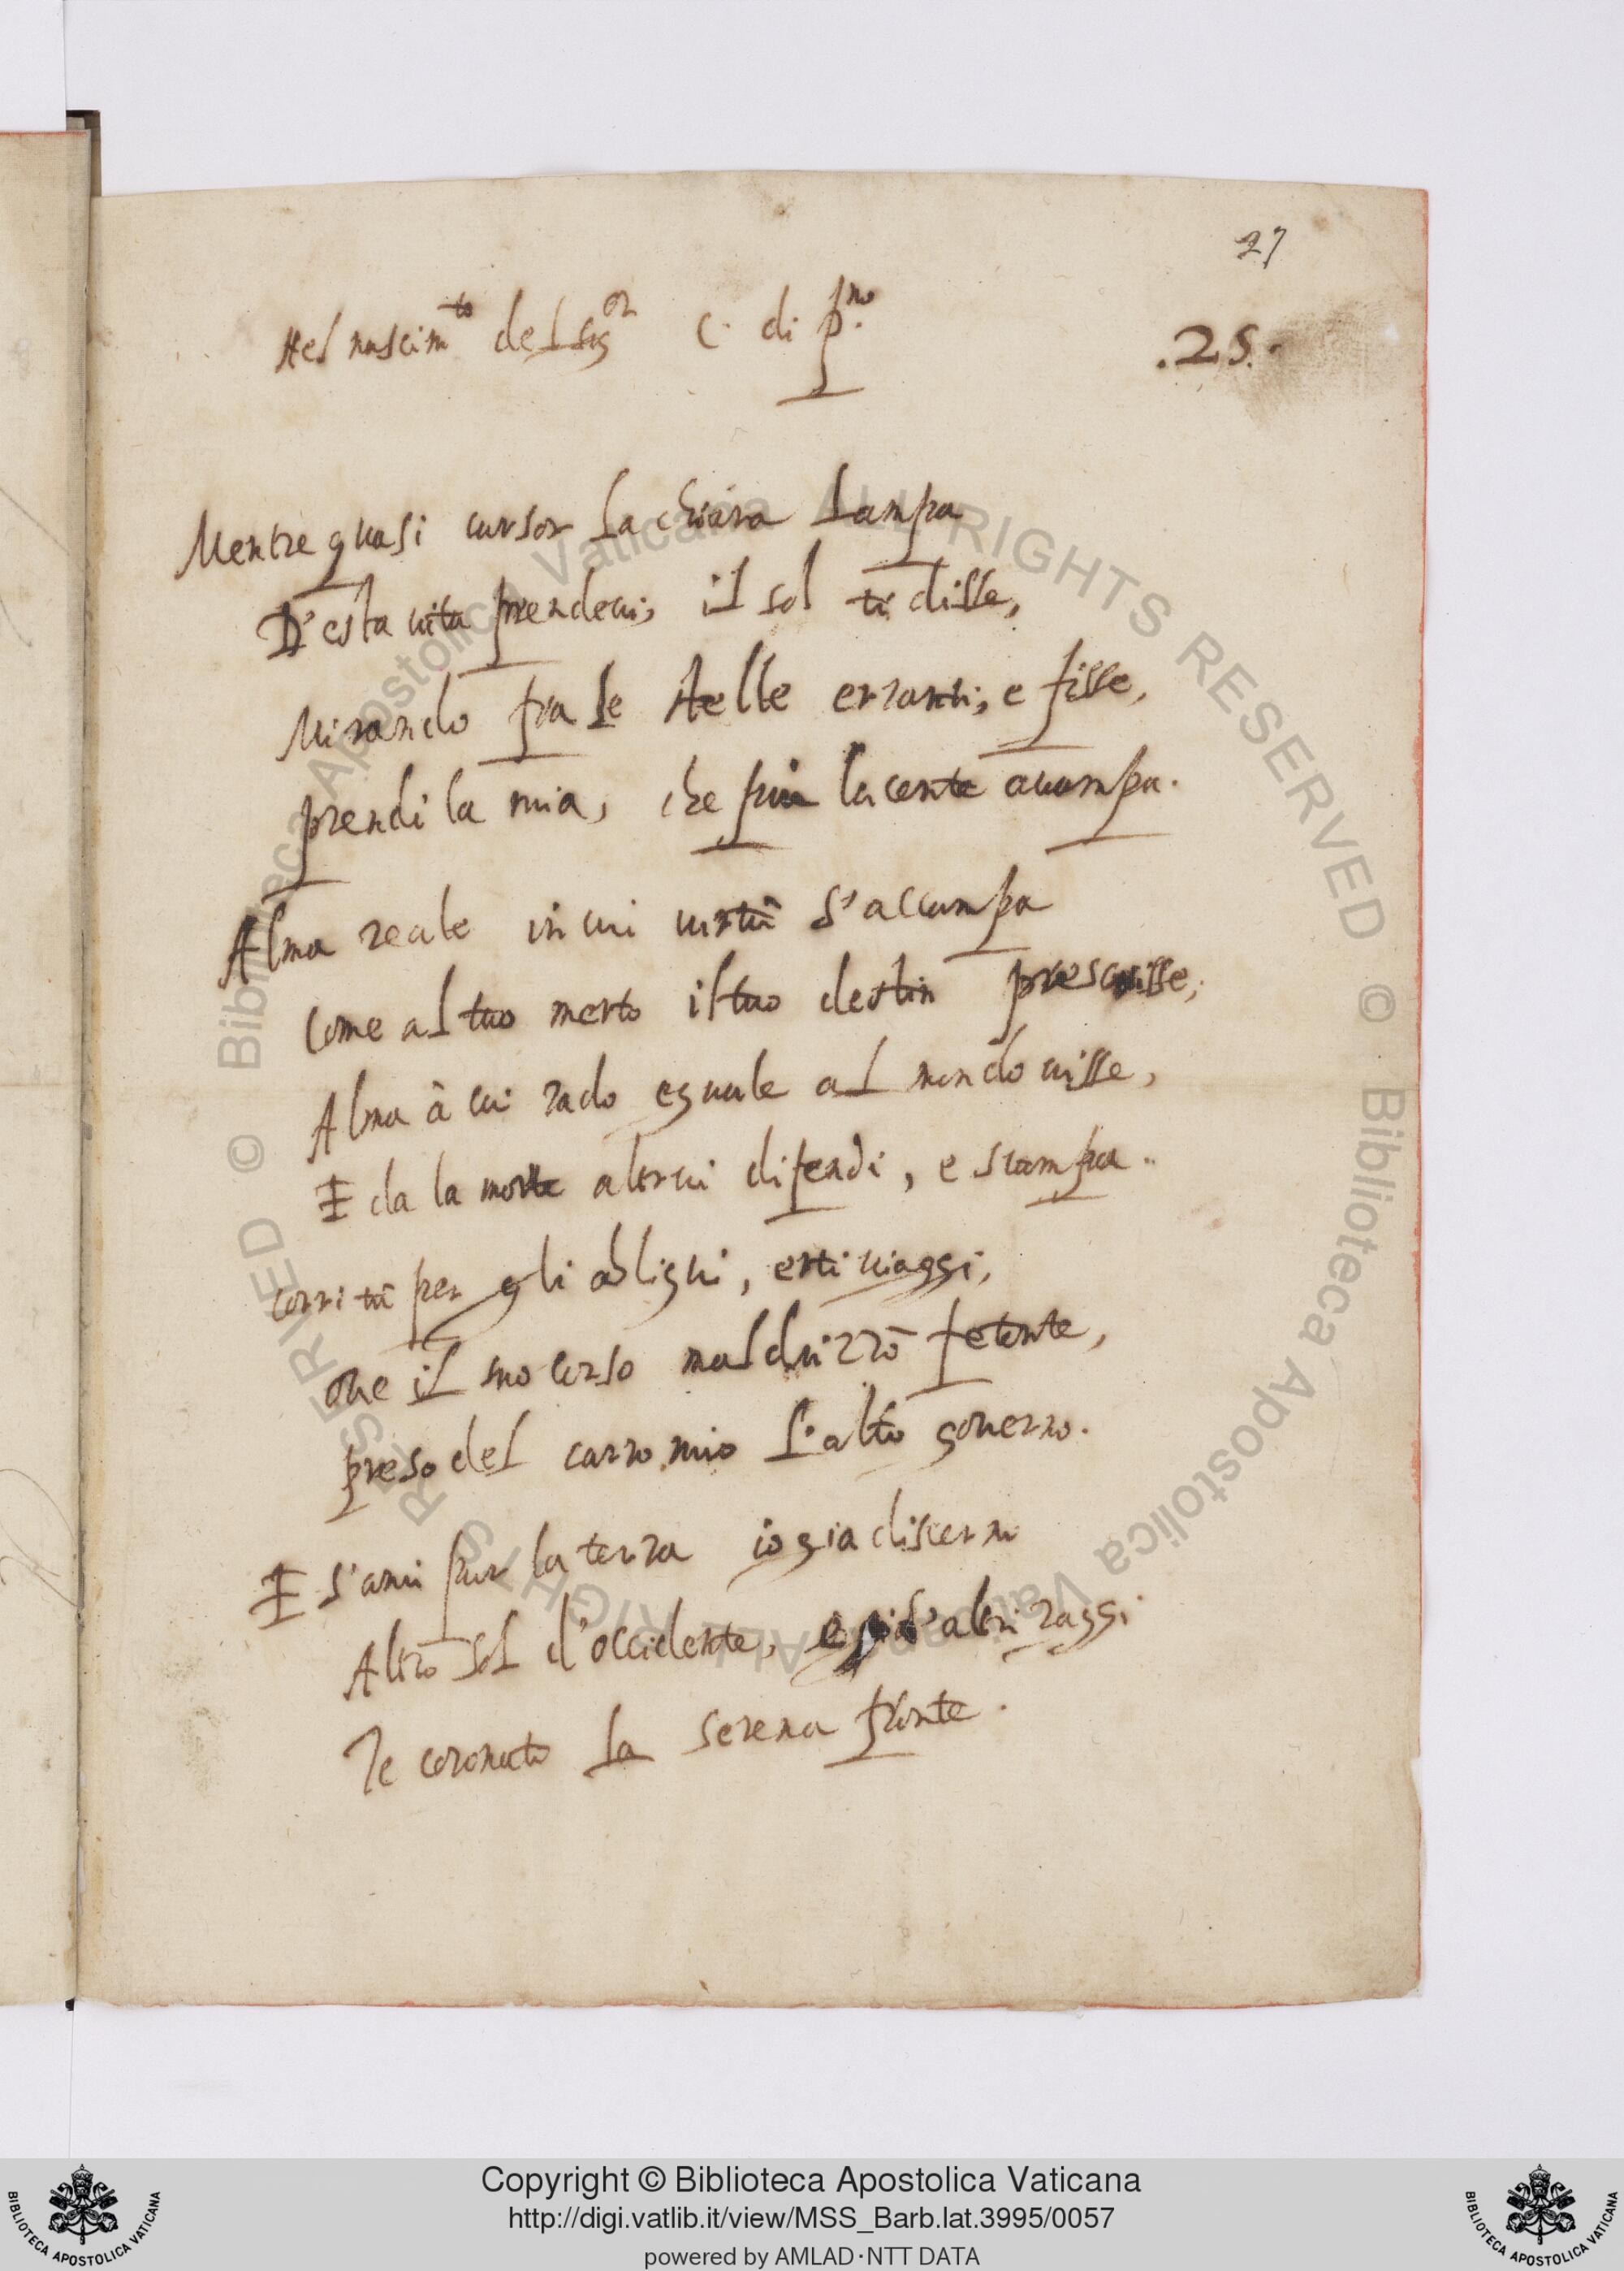 27
Nel nascimto del sigor C. di p.mo
.25.
Mentre quasi cursor la chiara lampa
D'esta vita prendevi, il sol ti disse,
Mirando fra le stelle erranti, e fisse,
prendi la mia, che più lucente avampa.
Alma reale in cui virtù s'accampa
Come al tuo merto il tuo destin prescrisse,
Alma à cui rado eguale al mondo visse,
E da la morte altrui difendi, e scampa..
corri tù per gli oblighi, erti viaggi,
ove il suo corso mal drizzò fetonte,
preso del carro mio l'alto governo.
E s'ami pur la terra io gia discerno
Altro sol d'occidente, e altri raggi
Te coronato la serena fronte.
© Biblioteca Apostolica Vaticana ALL RIGHTS RESERVED © Biblioteca Apostolica Vaticana ALL RIGHTS RESERVED
Copyright © Biblioteca Apostolica Vaticana
http://digi.vatlib.it/view/MSS_Barb.lat.3995/0057
powered by AMLAD·NTT DATA
BIBLIOTECA APOSTOLICA VATICANA
BIBLIOTECA APOSTOLICA VATICANA